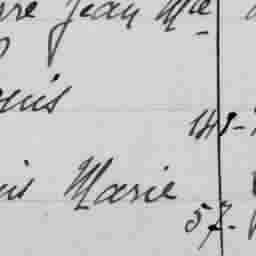 rre Jean Mie
ouis
148-
uis Marie
57-